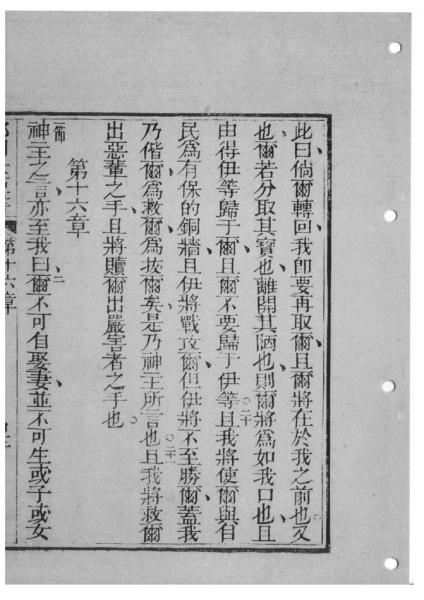 此曰倘爾轉回我卽要再取爾且爾將在於我之前也又
也爾若分取其寶也離開其陋也則爾將爲如我口也且
由得伊等歸于爾且爾不要歸于伊等且我將使爾與百
二十
民爲有保的銅牆且伊將戰攻爾但伊將不至勝爾蓋我
乃偕爾爲救爾爲拔爾矣是乃神主所言也且我將救爾
二十一
出惡輩之手且將贖爾出嚴害者之手也
第十六章
一節
神主之言亦至我曰爾不可自娶妻並不可生或子或女
二
第十六章